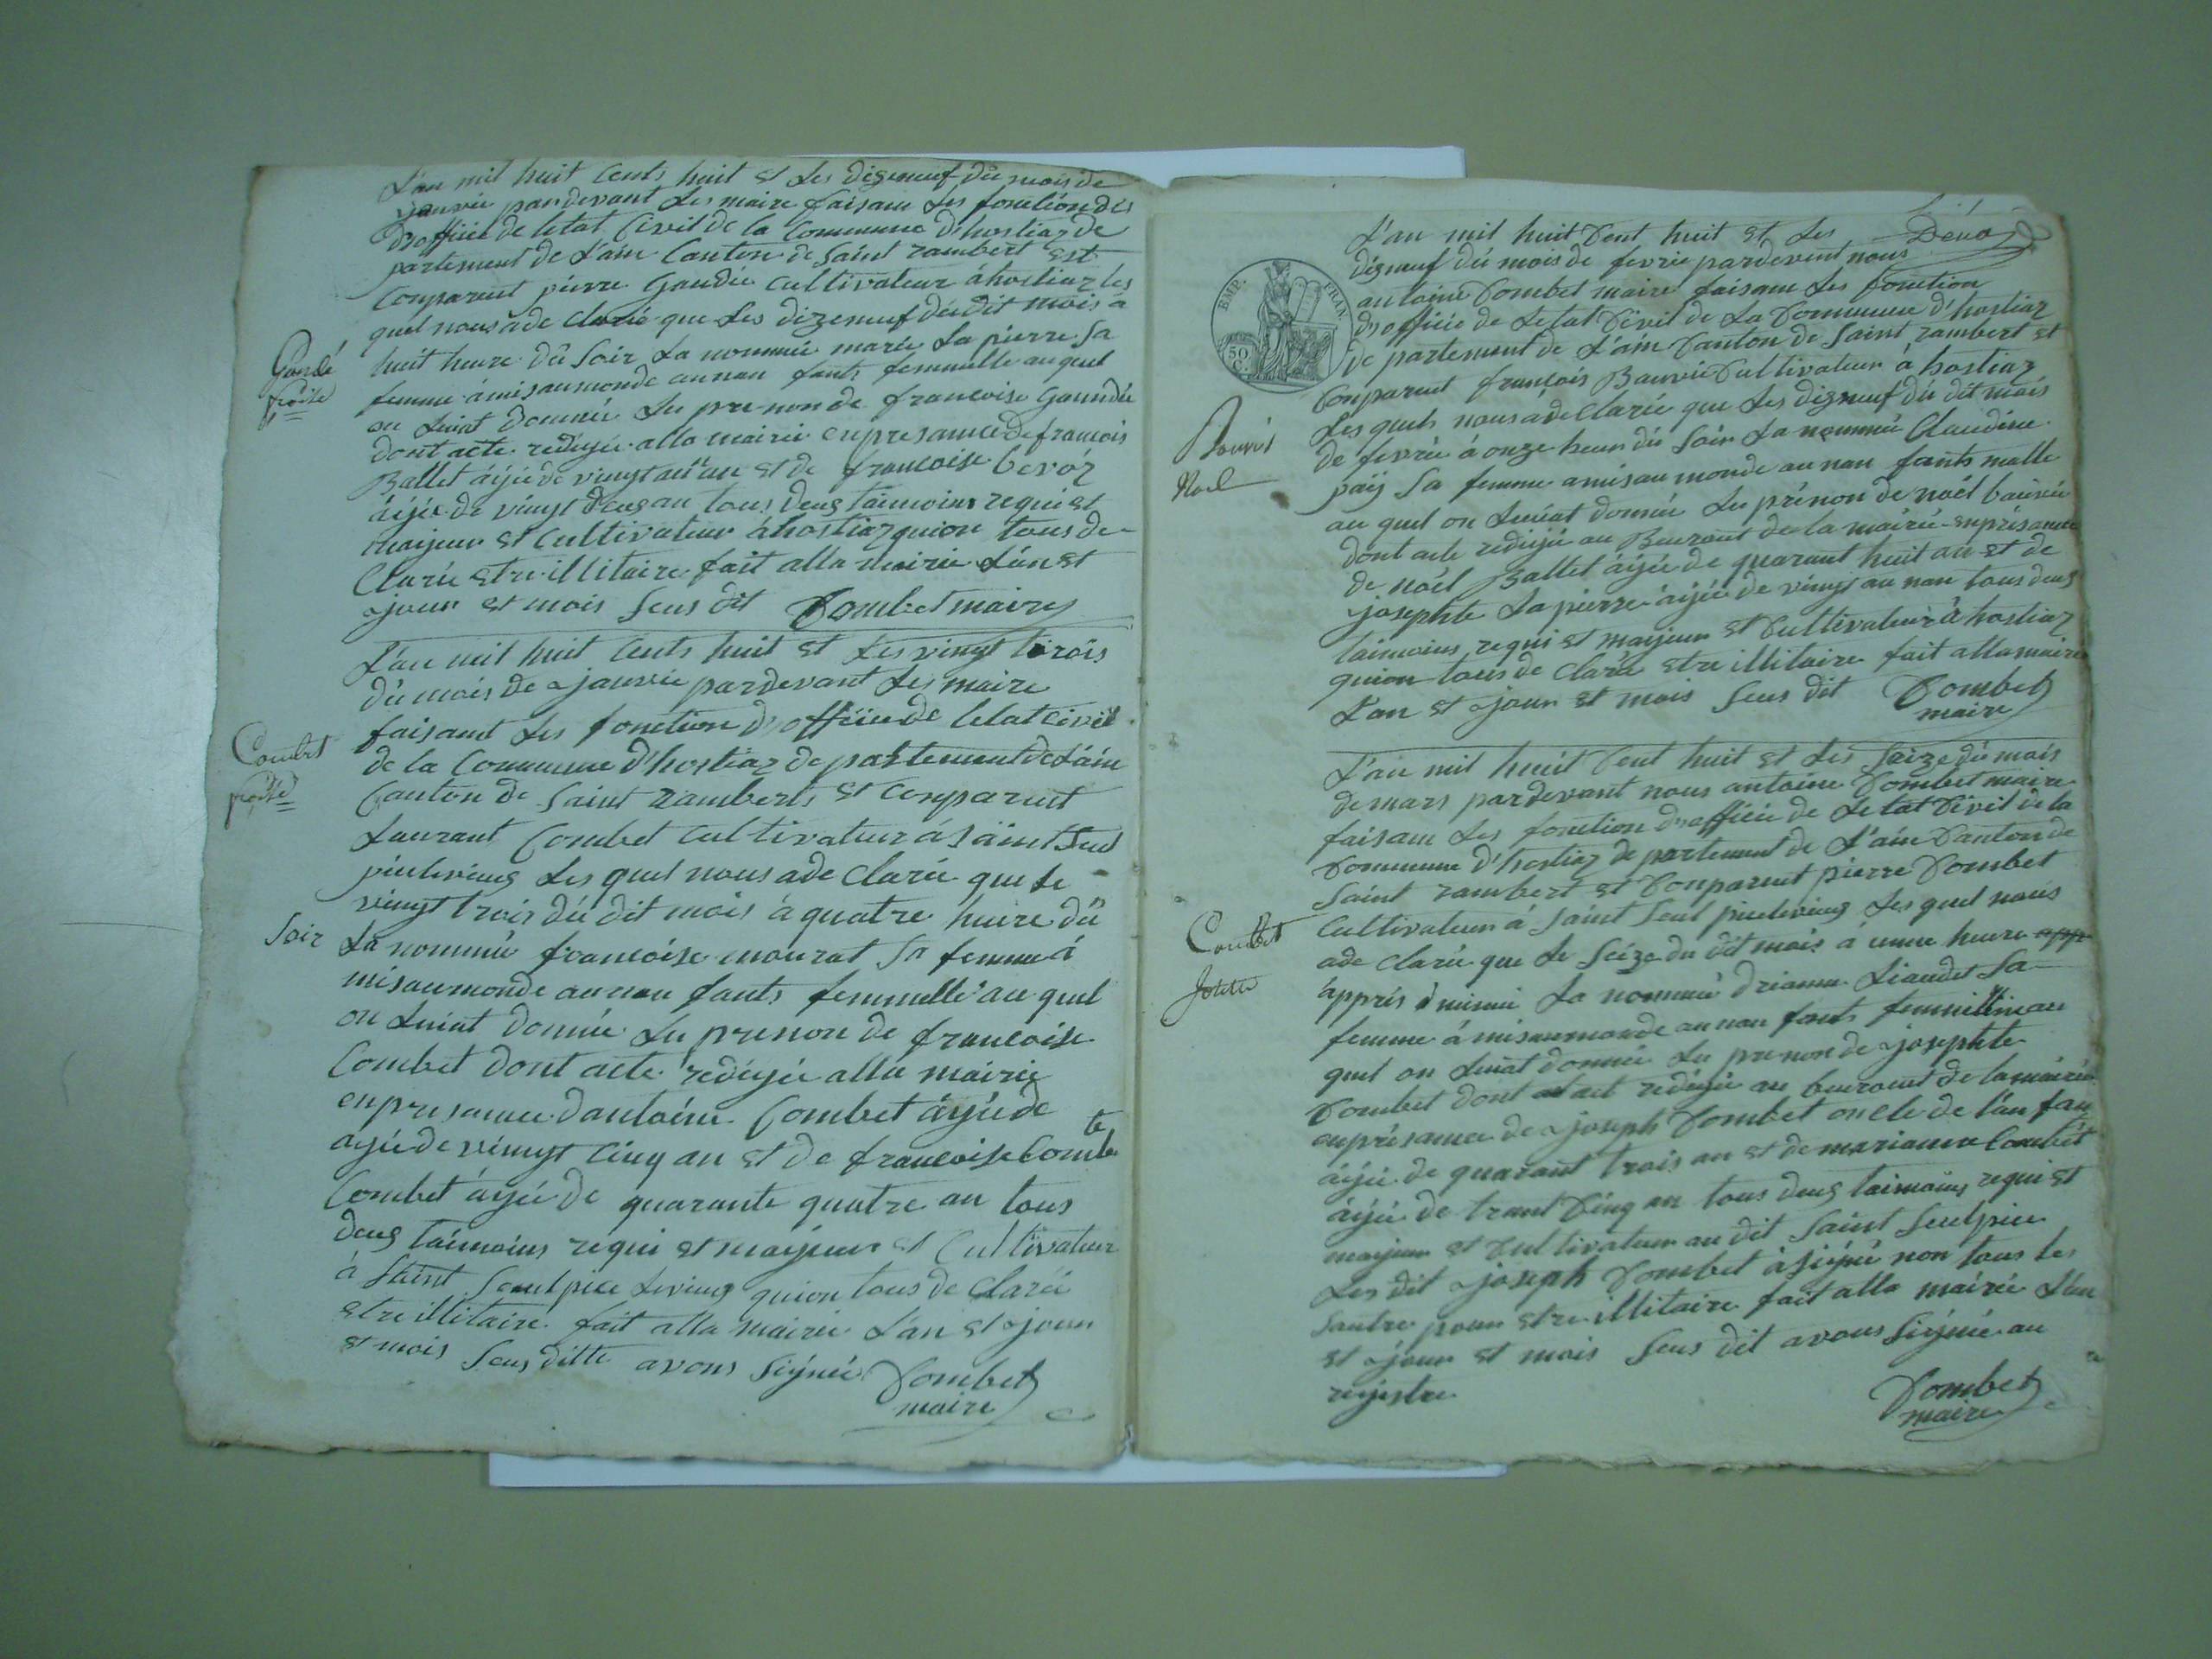 L'an mil huit Cents huit et Les dizeneuf du mois de
janvie pardevant Les maire faisam Les fonction des
dofficie de letat Civil de la Commune d'hostiaz de
partement de L'ain Canton de Saint rambert est
Conpareut pierre Gaudie Cultivateur à hostiaz les
quel nous à de Clarée que Les dizeneuf du dit mois à
huit heure du Soir La nommée marie La pierre Sa
femme à mis aumonde au nan fants femmelle au quel
on Luiat Donnée Le pre non de francoise Gaundie
dont acte redigée alla mairie enpresamce de francois
Ballet àjée de vingt an et de francoise bevoz
àjée de vingt deus an tous deus taimoins requi et
maijeur et Cultivateur à hostiaz quion tous de
Clarée etre illitaire fait alla mairie L'an et
jour et mois Seus dit Combet maire
Gandé
fçoise
L'an mil huit Cents huit et Les vingt trois
du mois de janvie pardevant Les maire
faisant Les fonction d'officie de letat Civil
de la Commune d'hostiaz de partement de L'ain
Canton de Saint ramberts et Conpareut
Laurant Combet Cultivateur à Saint Seul
pice levieus Les quel nous a de Clarée que le
vingt trois du dit mois à quatre huire du
Soir La nommée francoise mourat Sa femme à
mis aumonde au nan fants femmelle au quel
on Luiat donnée Le prenon de francoise
Combet dont acte redigée alla mairie
enpresamce d'antoine Combet àjée de
ajée de vingt Cinq an et de francoise Combette
Combet àjée de quarante quatre an tous
deus taimoins requi et maijeur et Cultivateur
à Saint Seulpice levieus quion tous de Clarée
etre illitaire fait alla mairie L'an et jour
et mois Seus ditte avons Signée Combet
maire
Combet
fçoise
Dénoz
L'an mil huit Cent huit et Les
dizneuf du mois de fevrie pardevent nous
antoine Combet maire faisam Les fonction
d'officie de Letat Civil de La Commune d'hostiaz
de partement de L'ain Canton de Saint rambert et
Conpareut francois Bauvié Cultivateur à hostiaz
Les quels nous à de Clarée que Les dizneuf du dit mois
de fevrie à onze heur du Soir La nommée Claudine
paij Sa femme a mis au monde au nan fants malle
au quel on Luiat donnée Le prénon de noël bauvie
dont acte redigée au Beuraut de la mairie enprésamce
de noël Ballet àijée de quarant huit an et de
josephte La pierre àijée de vingt an nan tous deus
taimoins requi et maijeur et Cultivateur à hostiaz
quion tous de Clarée etre illitaire fait alla mairie
L'an et jour et mois Seus dit Combet
maire
EMP. FRAN.
50
C.
Bouvié
Noel
L'an mil huit Cent huit et Les Saize du mois
de mars pardevant nous antoine Combet maire
faisam Les fonction d'officie de Letat Civil de la
Commune d'hostiaz de partement de L'ain Canton de
Saint rambert et Conpareut pierre Combet
Cultivateur à Saint Seul pice levieus Les quel nous
ade Clarée que Le Seize du dit mois à eune heure app
apprés d mimi La nommée Drianne Liaudet Sa
femme à mis aumonde au nan fants femmelline au
quel on Luiat donnée Le pre non de josephte
Combet dont act redigée au beuraut de la mairie
enprésamce de joseph Combet oncle de L'an fan
àijée de quarant trois an et de marianne Combet
àijée de trant Cinq an tous deus taimoins requi et
maijeur et Cultivateur au dit Saint Seulpice
Les dit joseph Combet à Signé non tous les
Sautre pour etre illitaire fait alla mairie L'an
et jour et mois Seus dit avons Signée au
rejistre
Combet
maire
Combet
Josette